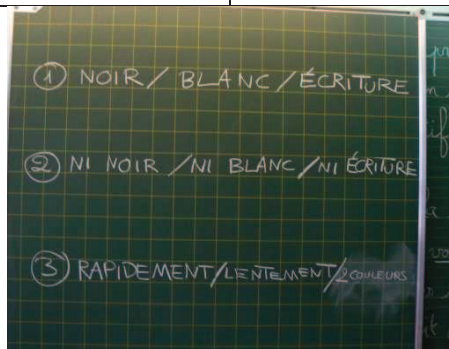 ① NOIR / BLANC / ÉCRITURE
② NI NOIR / NI BLANC / NI ÉCRITURE
③ RAPIDEMENT/LENTEMENT/2 COULEURS